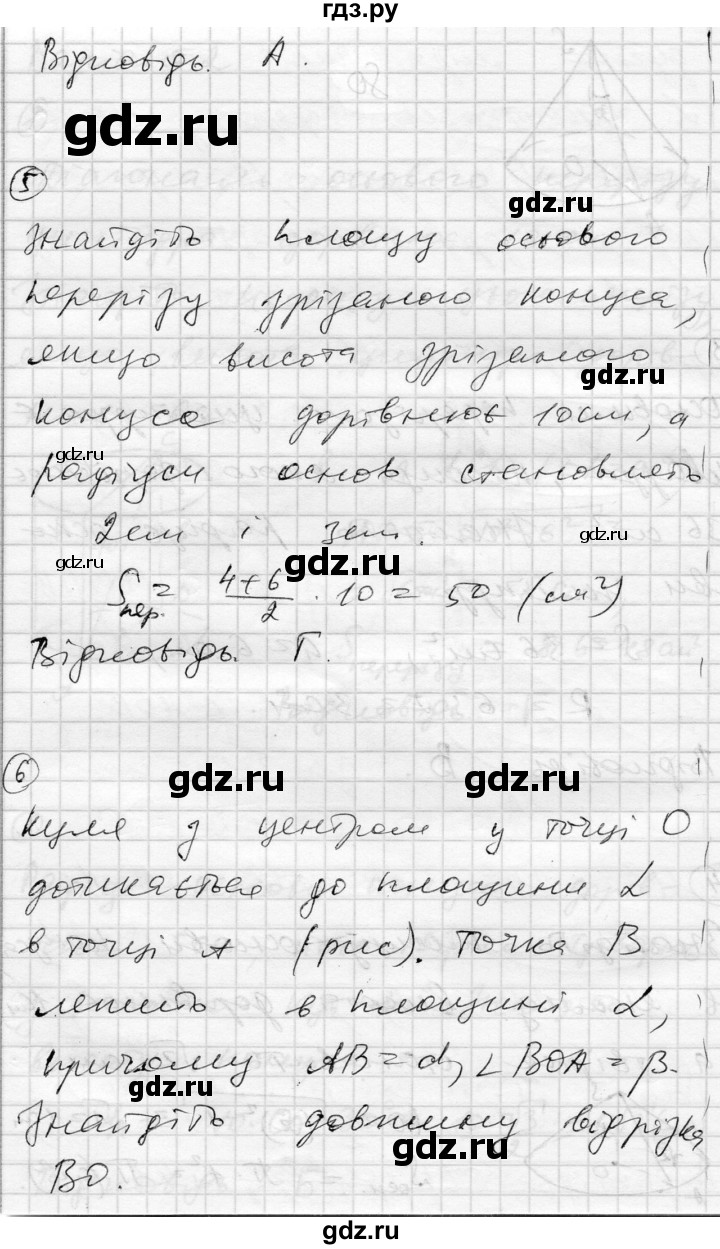 гдз.ру
Відповідь. А.
gdz.ru
5
gdz.ru
Знайдіть площу осьового
перерізу зрізаного конуса,
якщо висота зрізаного
gdz.ru
конуса дорівнює 10см, а
gdz.ru
радіуси основ становлять
2см і 3см.
gdz.ru
gdz.ru
Sпер. = (4+6)/2 · 10 = 50 (см²)
Відповідь. Г.
6
gdz.ru gdz.ru
Куля з центром у точці О
дотикається до площини α
в точці А (рис). Точка В
лежить в площині α,
причому AB = d, ∠BOA = β.
gdz.ru
Знайдіть довжину відрізка
gdz.ru
ВО.
gdz.ru